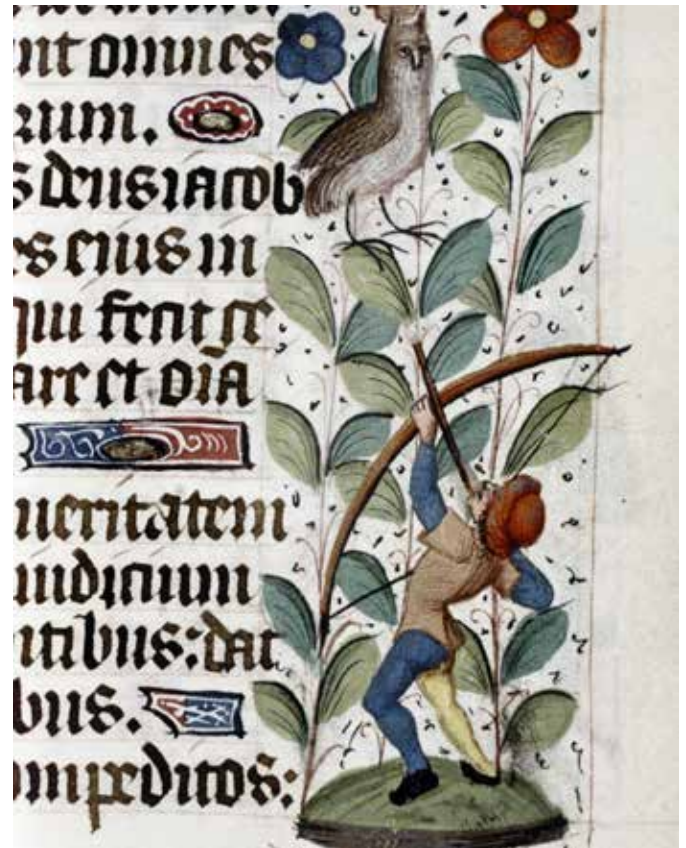 nt omnes
rum.
s deus iacob
es eius in
qui fecit ce
are et oĩa
ueritatem
iudicium
ntibus: dat
bus.
ompeditos: